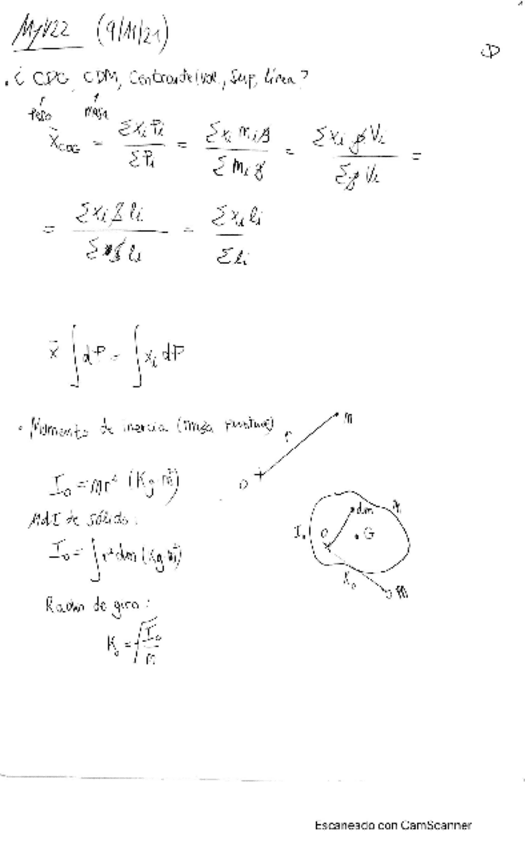 MyV22 (9/11/21)
①
. ¿ CDG, CDM, Centroide (vol, Sup, línea?
Peso masa
x̄_CDG = Σx_i P_i / ΣP_i = Σx_i m_i g / Σm_i g = Σx_i ρ V_i / Σρ V_i =
= Σx_i S l_i / ΣS l_i = Σx_i l_i / Σl_i
x̄ ∫dP = ∫x_i dP
. Momento de inercia (masa puntual)
r
M
O
I_o = Mr² (Kg m²)
MdI de sólido:
I_o = ∫r²dm (Kg m²)
dm
I_o
O
G
K_o
M
Radio de giro:
K_o = √(I_o/M)
Escaneado con CamScanner